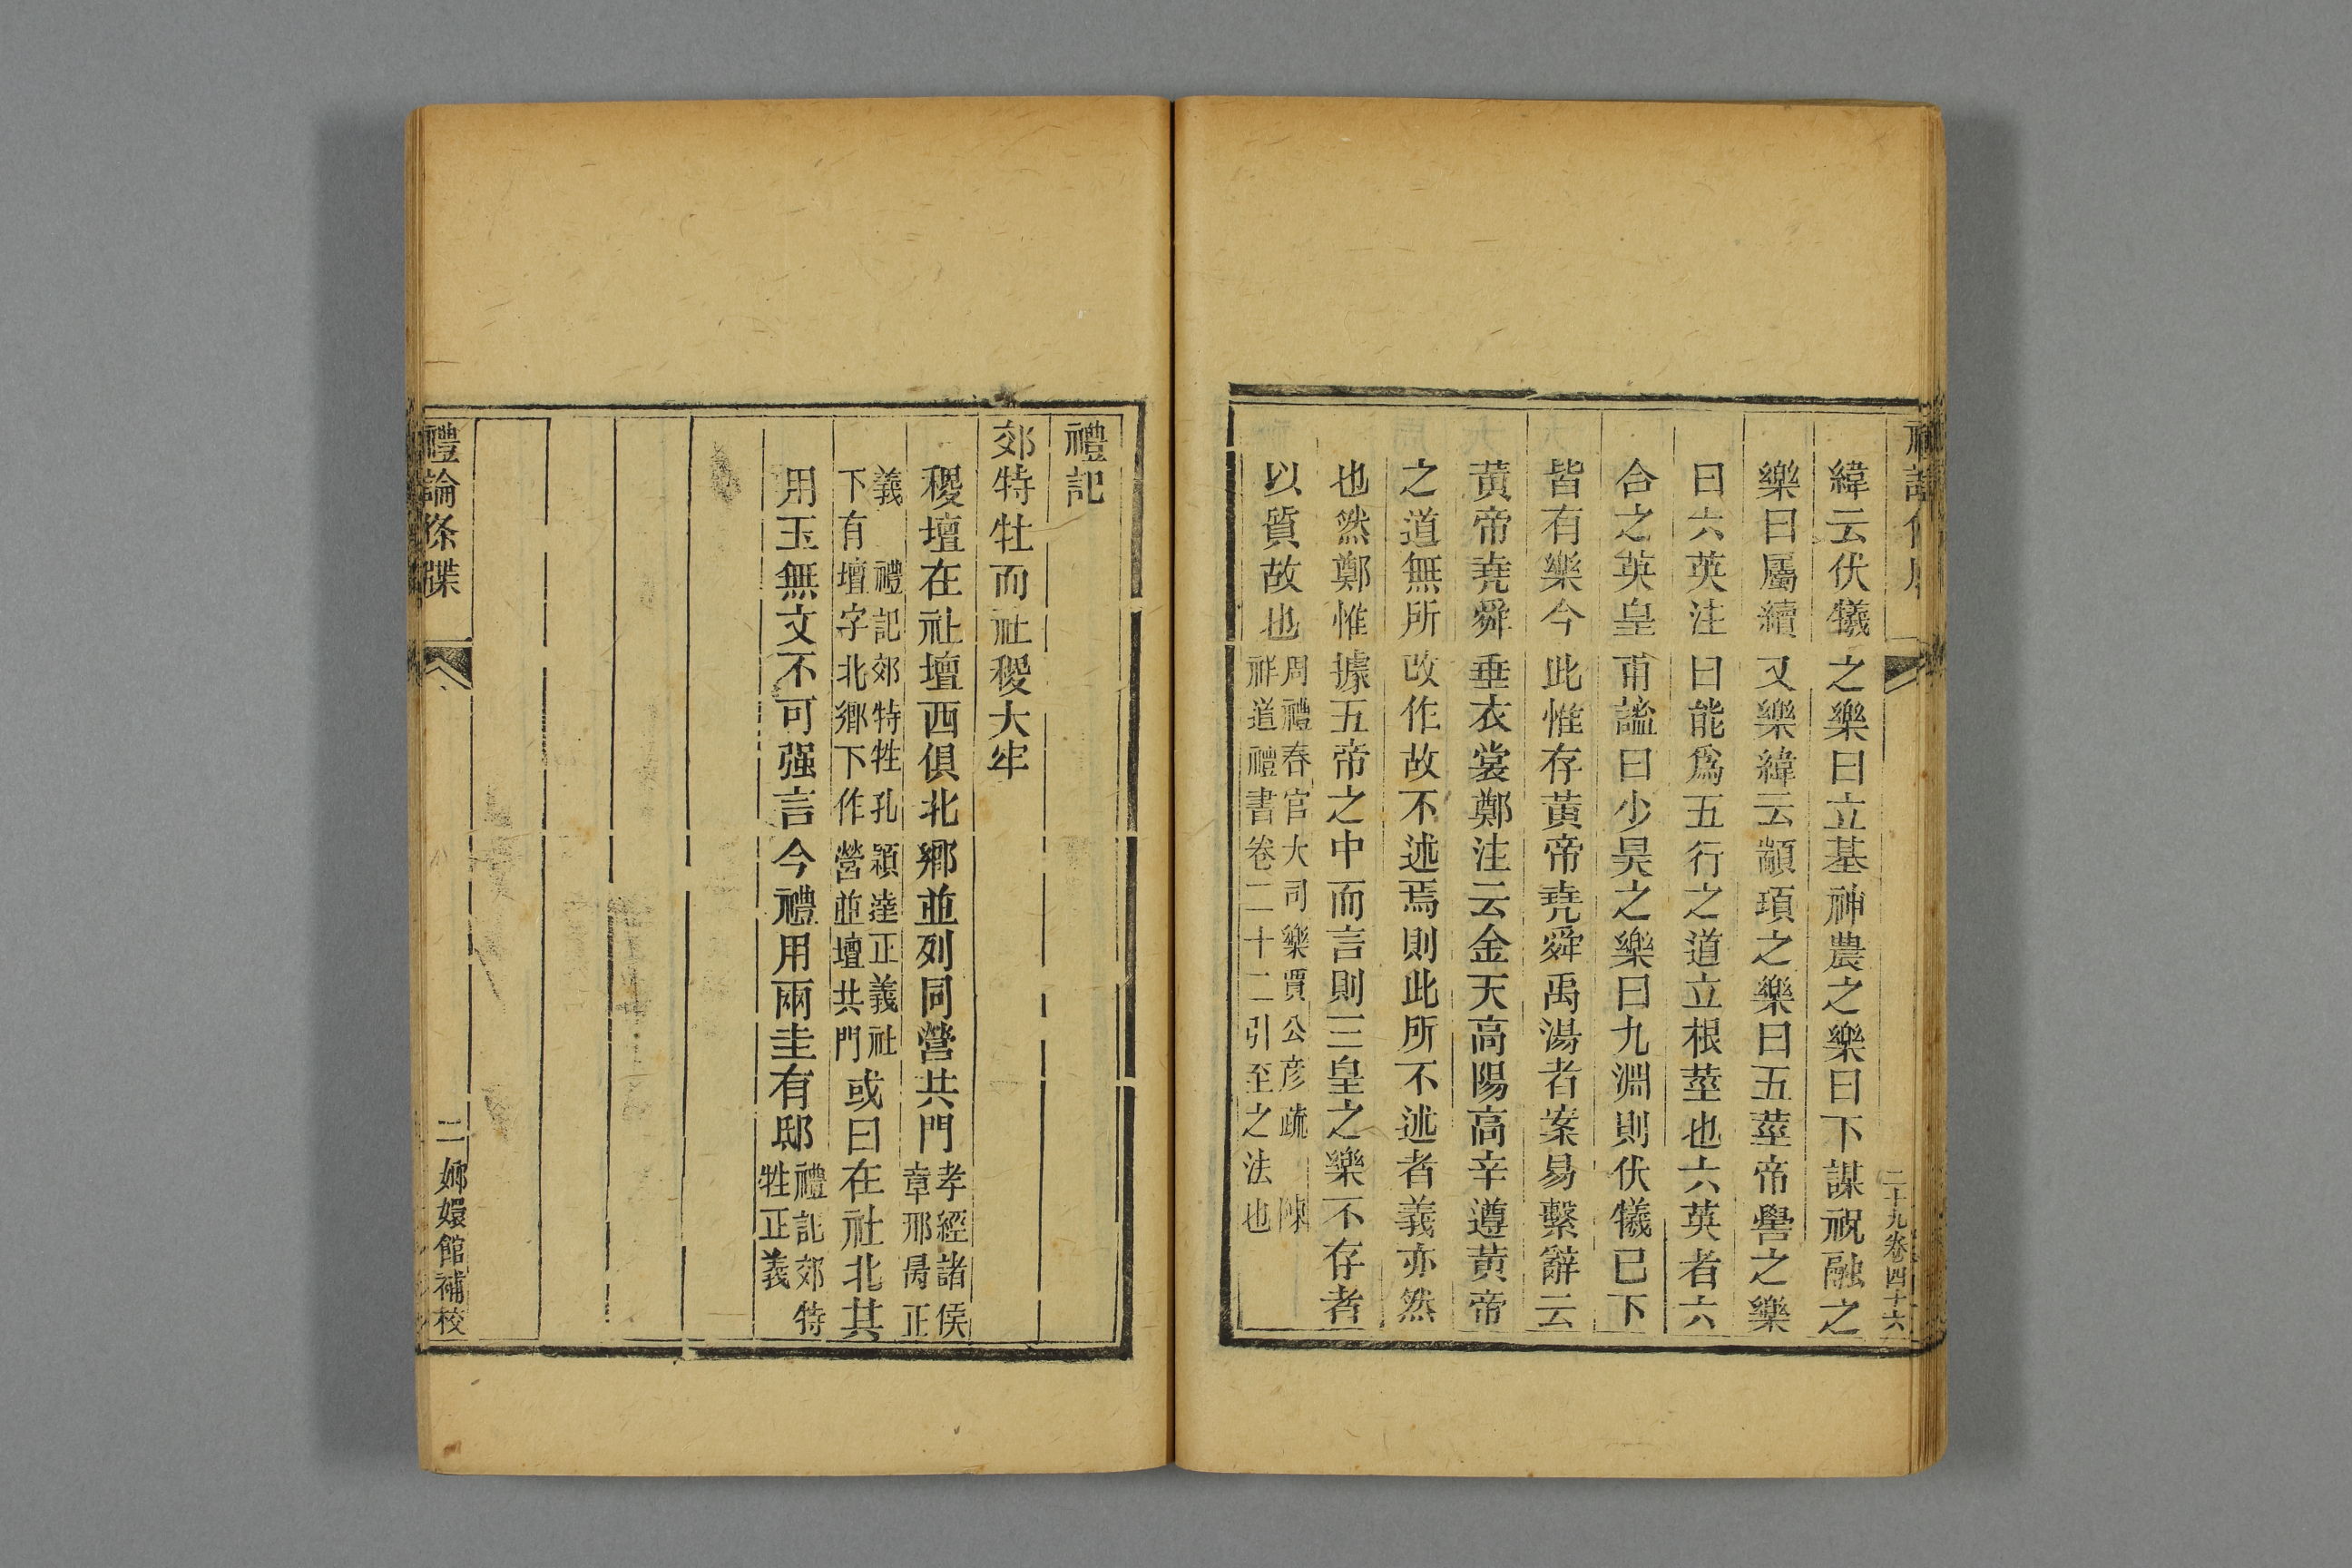 緯云伏犧之樂曰立基神農之樂曰下謀祝融之
樂曰屬續又樂緯云顓頊之樂曰五莖帝嚳之樂
曰六英注曰能爲五行之道立根莖也六英者六
合之英皇甫謐曰少昊之樂曰九淵則伏犧已下
皆有樂今此惟存黃帝堯舜禹湯者案易繫辭云
黃帝堯舜垂衣裳鄭注云金天高陽高辛遵黃帝
之道無所改作故不述焉則此所不述者義亦然
也然鄭惟據五帝之中而言則三皇之樂不存者
以質故也周禮春官大司樂賈公彥疏 陳
祥道禮書卷二十二引至之法也
二十九卷四十六
禮記
郊特牡而社稷大牢
稷壇在社壇西俱北鄉並列同營共門孝經諸侯
章邢昺正
義 禮記郊特牲孔穎達正義社
下有壇字北鄉下作營並壇共門或曰在社北其
用玉無文不可强言今禮用兩圭有邸禮記郊特
牲正義
禮論條牒
二
嫏嬛館補校